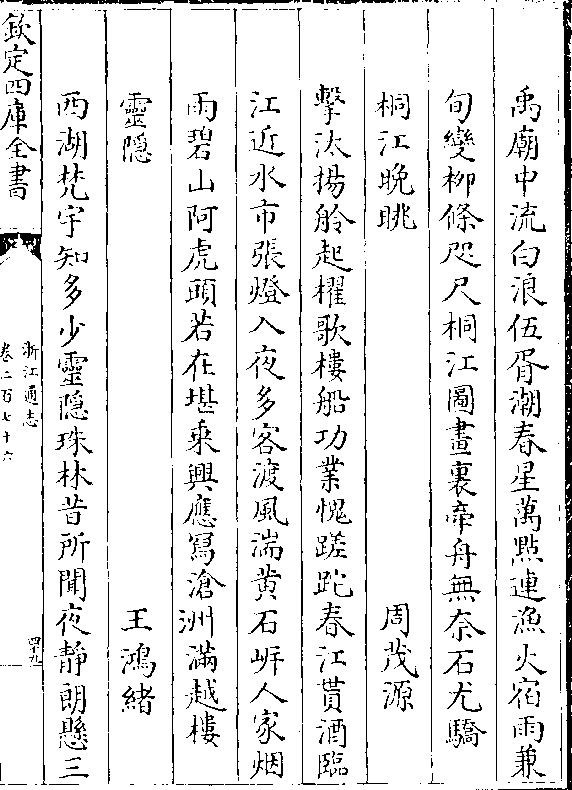 禹廟中流白浪伍胥潮春星萬點連漁火宿雨兼
旬變柳條咫尺桐江圖畫裏帝舟無奈石尤驕
桐江晚眺 周茂源
擊汰揚舲起櫂歌樓船功業愧蹉跎春江貰酒臨
江近水市張燈入夜多客渡風湍黄石㟁人家烟
雨碧山阿虎頭若在堪乘興應寫滄洲滿越樓
靈隱 王鴻緒
西湖梵宇知多少靈隱珠林昔所聞夜靜朗懸三
欽定四庫全書
浙江通志
卷二百七十六
四十九